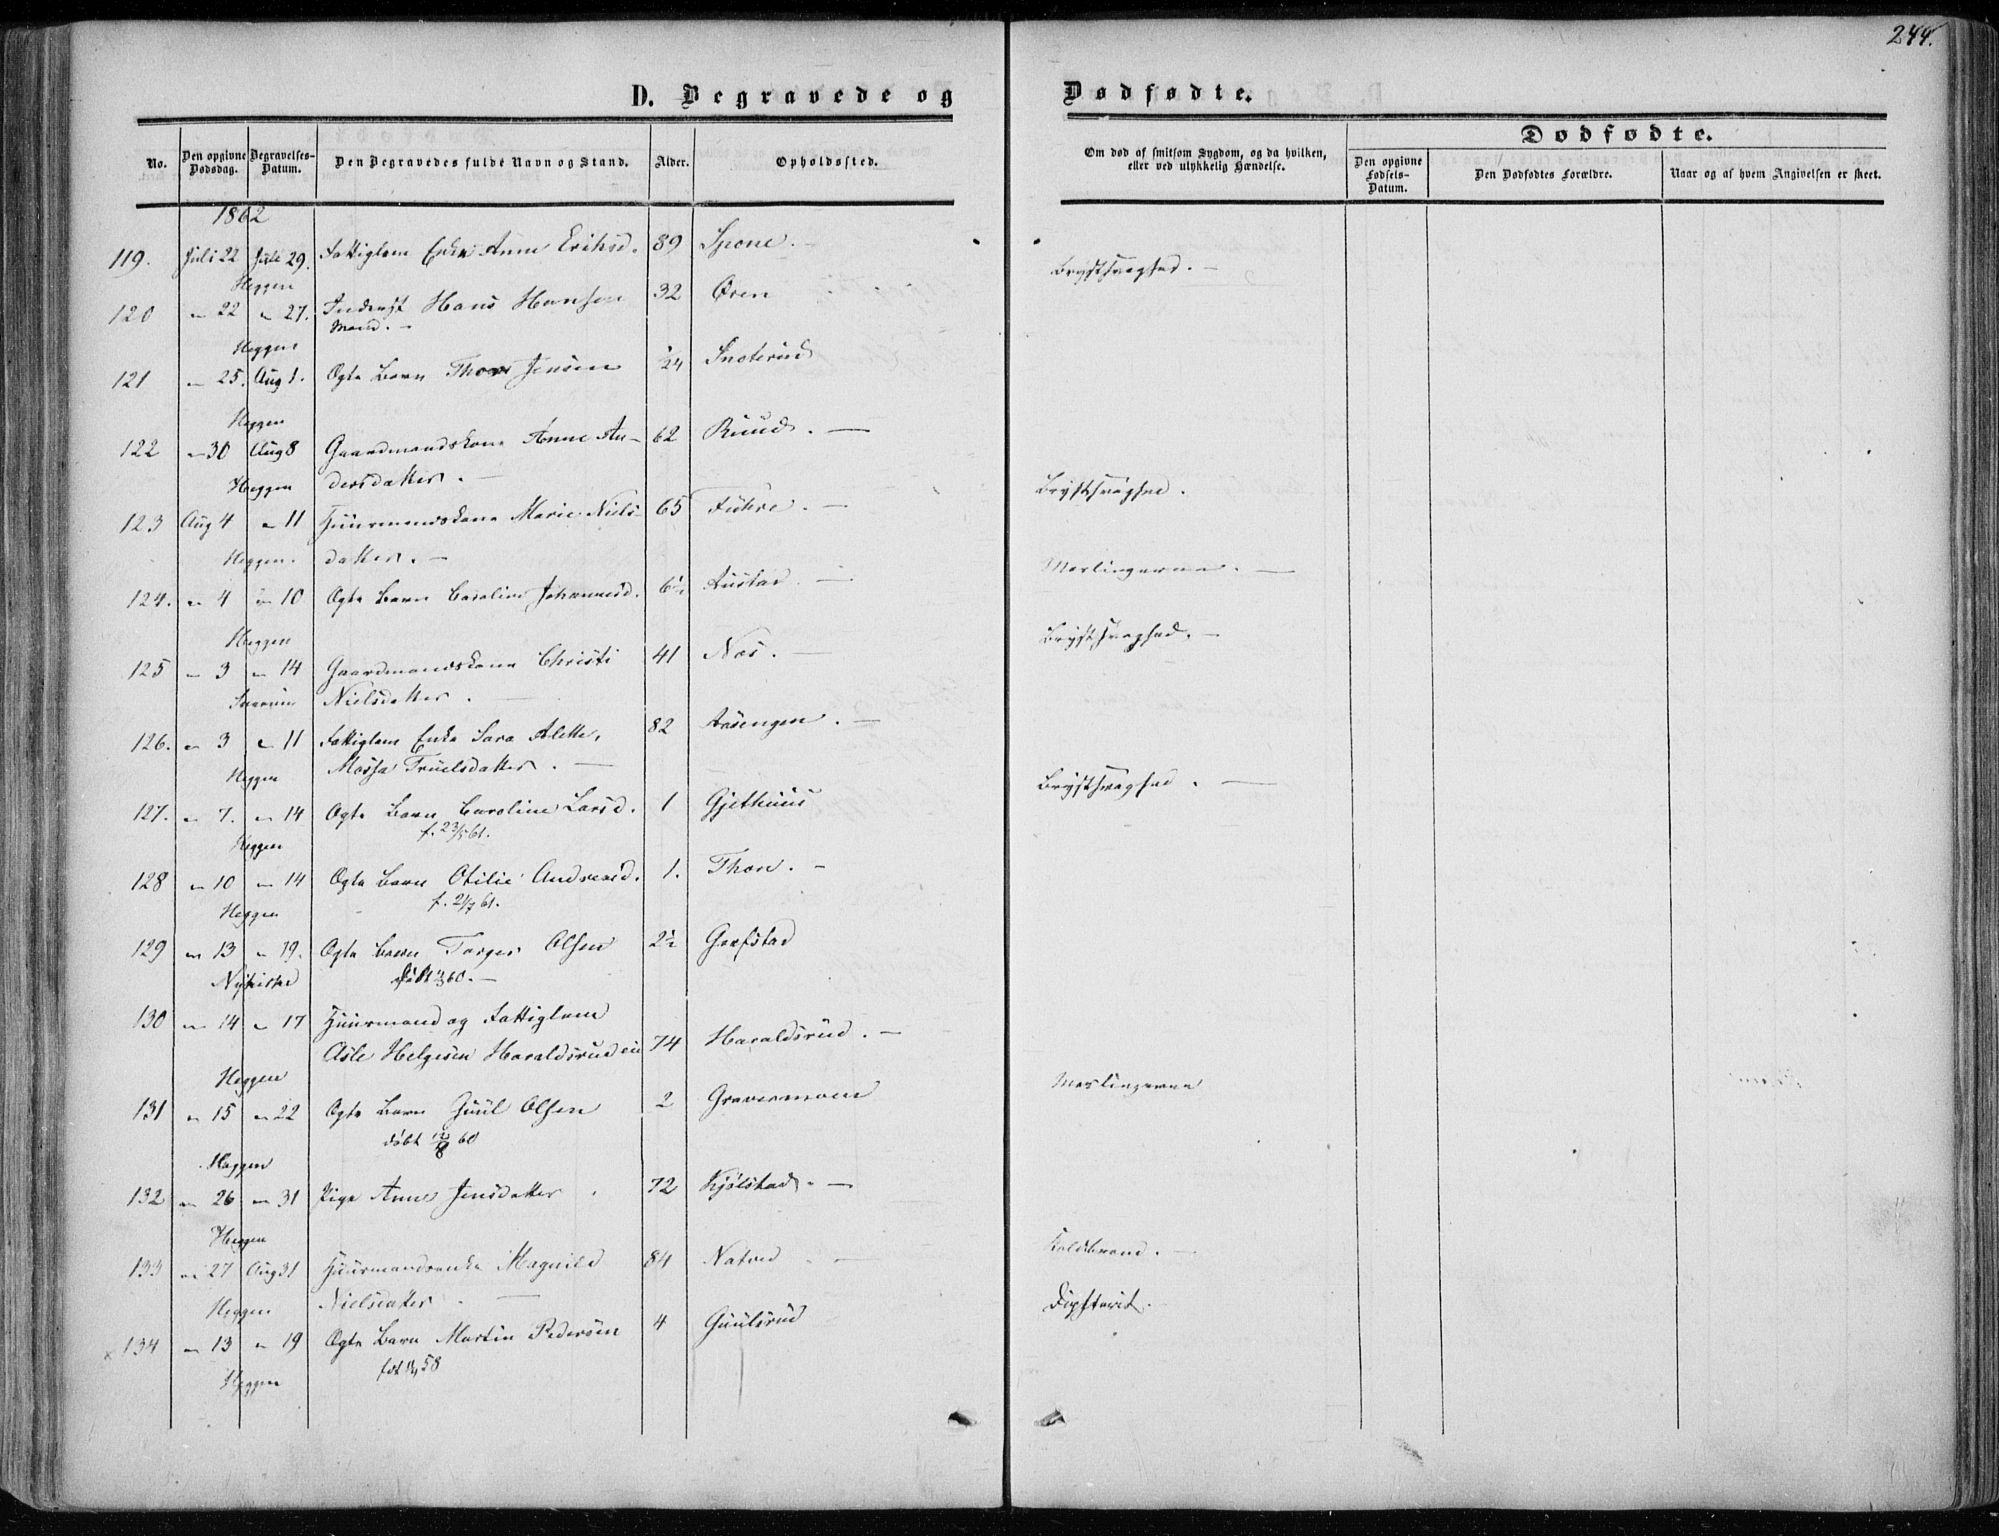 244.
D. Begravede og Dødfødte.
Dødfødte.
No. Den opgivne Dødsdag. Begravelses-Datum. Den Begravedes fulde Navn og Stand. Alder. Opholdssted. Om død af smitsom Sygdom, og da hvilken, eller ved ulykkelig Hændelse. Den opgivne Fødsels-Datum. Den Dødfødtes Forældre. Naar og af hvem Angivelsen er skeet.
1862
119. Juli 22 Juli 29. Fattiglem Enke Anne Eriksd. 89 Spone. Brystsvaghed.
Heggen
120 " 22 " 27. Inderst Hans Hansen 32 Øren
Mand.
Heggen
121 " 25. Aug 1. Ægte Barn Thor Jensen 1/24 Snoterud
Heggen
122 " 30 Aug 8 Gaardmandskone Anne An- 62 Ruud.
Heggen dersdatter.
123 Aug 4 " 11 Huusmandskone Marie Niels- 65 Fuhre. Brystsvaghed.
Heggen. datter.
124. " 4 " 10 Ægte Barn Caroline Johannesd. 6½ Austad. Meslingerne.
Heggen
125 " 3 " 14 Gaardmandskone Christi 41 Næs. Brystsvaghed.
Snarum Nielsdatter.
126. " 3 " 11 Fattiglem Enke Sara Alette, 82 Aasengen.
Heggen Mossa Truelsdatter.
127. " 7. " 14 Ægte Barn Caroline Larsd. 1 Gjethuus Brystsvaghed.
f. 23/5 61.
Heggen
128 " 10 " 14 Ægte Barn Otilie Andreasd. 1. Thon.
f. 21/7 61.
Heggen
129 " 13 " 19. Ægte Barn Torger Olsen 2½ Grefstad
60.
Nykirke
130 " 14 " 17 Huusmand og Fattiglem
Asle Helgesen Haraldsrudeie 74 Haraldsrud.
Heggen
131 " 15 " 22 Ægte Barn Juul Olsen 2 Gravermoen Meslingerne
døbt 12/8 60
Heggen
132 " 26 " 31 Pige Anne Jensdatter. 72 Kjølstad.
Heggen
133 " 27 Aug 31 Huusmandsenke Magnild 84 Natved Koldbrand.
Heggen Nielsdatter.
134 " 13 " 19 Ægte Barn Martin Pedersen 4 Guulsrud Dipfterit.
58
Heggen